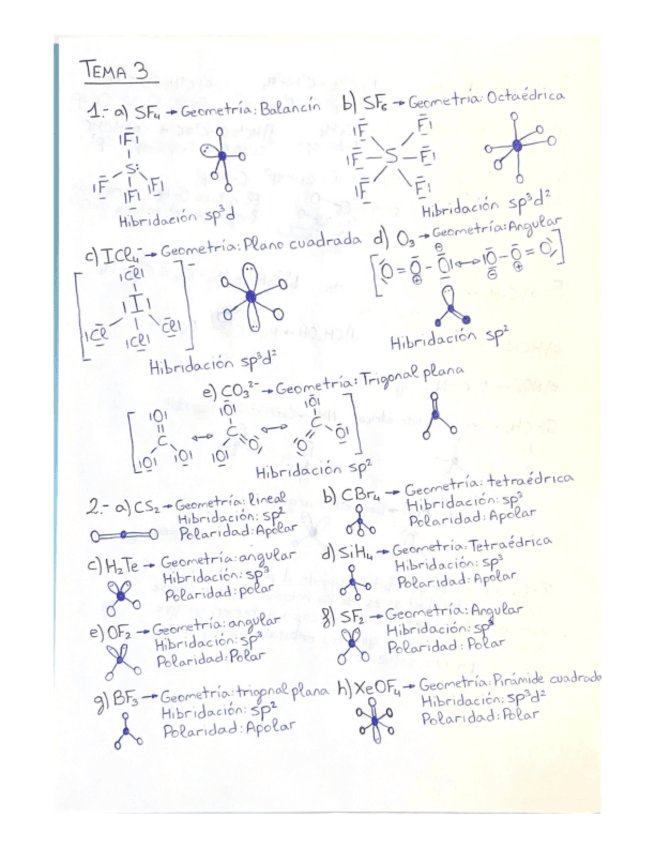 TEMA 3
1.- a) SF₄ → Geometría: Balancín
b) SF₆ → Geometría: Octaédrica
Hibridación sp³d
Hibridación sp³d²
c) ICl₄⁻ → Geometría: Plano cuadrada
d) O₃ → Geometría: Angular
Hibridación sp³d²
Hibridación sp²
e) CO₃²⁻ → Geometría: Trigonal plana
Hibridación sp²
2.- a) CS₂ → Geometría: lineal
Hibridación: sp²
Polaridad: Apolar
b) CBr₄ → Geometría: tetraédrica
Hibridación: sp³
Polaridad: Apolar
c) H₂Te → Geometría: angular
Hibridación: sp³
Polaridad: polar
d) SiH₄ → Geometría: Tetraédrica
Hibridación: sp³
Polaridad: Apolar
e) OF₂ → Geometría: angular
Hibridación: sp³
Polaridad: Polar
f) SF₂ → Geometría: Angular
Hibridación: sp³
Polaridad: Polar
g) BF₃ → Geometría: trigonal plana
Hibridación: sp²
Polaridad: Apolar
h) XeOF₄ → Geometría: Pirámide cuadrada
Hibridación: sp³d²
Polaridad: Polar